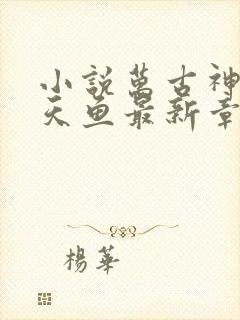 小説萬古神
天魚最新章
楊華